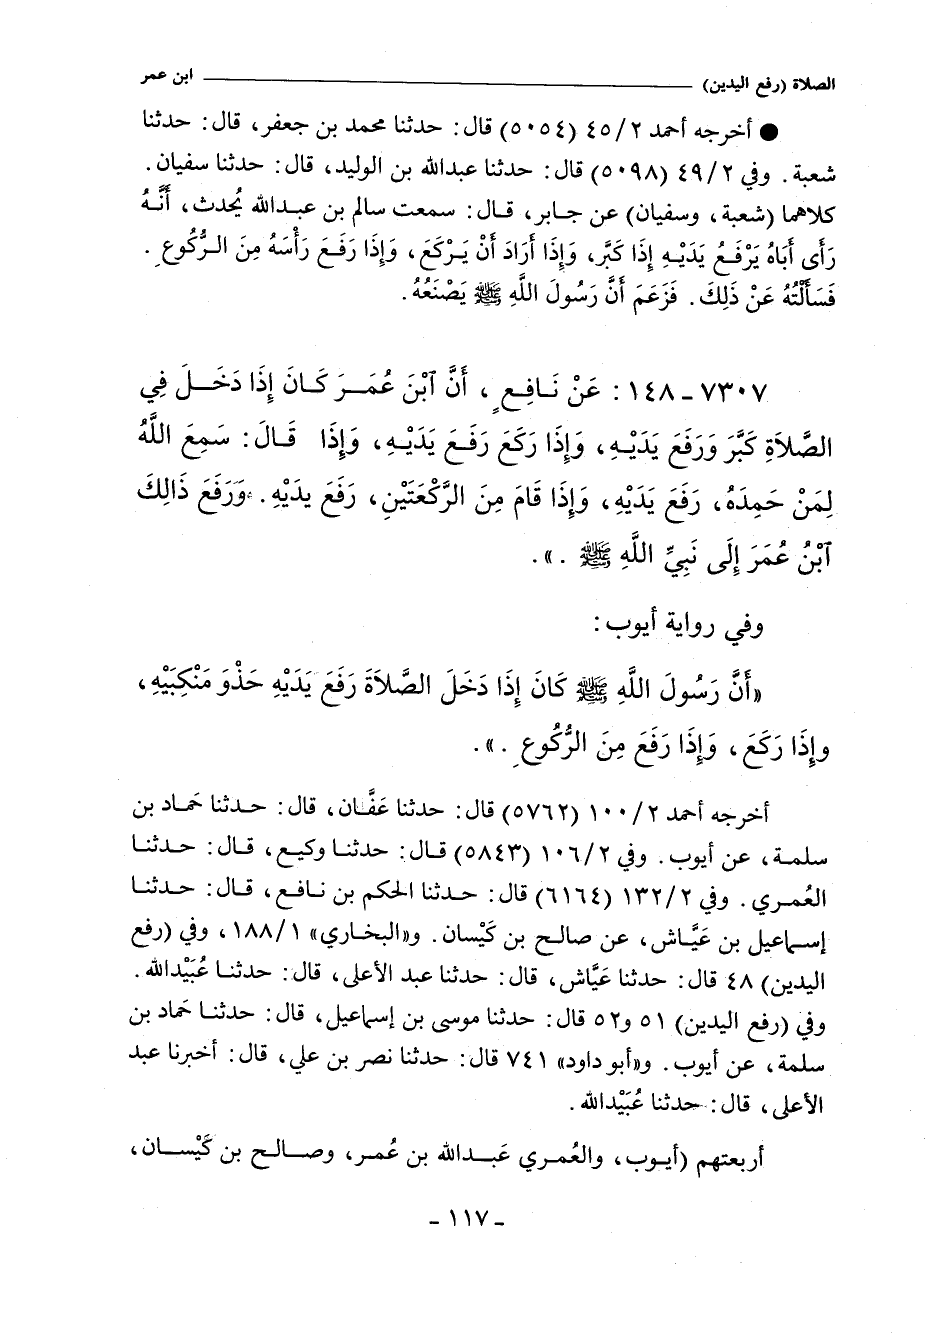 الصلاة (رفع اليدين) ابن عمر
● أخرجه أحمد ٤٥/٢ (٥٠٥٤) قال: حدثنا محمد بن جعفر، قال: حدثنا
شعبة. وفي ٤٩/٢ (٥٠٩٨) قال: حدثنا عبدالله بن الوليد، قال: حدثنا سفيان.
كلاهما (شعبة، وسفيان) عن جابر، قال: سمعت سالم بن عبدالله يُحدث، أَنَّهُ
رَأَى أَبَاهُ يَرْفَعُ يَدَيْهِ إِذَا كَبَّرَ، وَإِذَا أَرَادَ أَنْ يَرْكَعَ، وَإِذَا رَفَعَ رَأْسَهُ مِنَ الرُّكُوعِ.
فَسَأَلْتُهُ عَنْ ذَلِكَ. فَزَعَمَ أَنَّ رَسُولَ اللَّهِ ﷺ يَصْنَعُهُ.
٧٣٠٧ - ١٤٨: عَنْ نَافِعٍ، أَنَّ ٱبْنَ عُمَرَ كَانَ إِذَا دَخَلَ فِي
الصَّلاَةِ كَبَّرَ وَرَفَعَ يَدَيْهِ، وَإِذَا رَكَعَ رَفَعَ يَدَيْهِ، وَإِذَا قَالَ: سَمِعَ اللَّهُ
لِمَنْ حَمِدَهُ، رَفَعَ يَدَيْهِ، وَإِذَا قَامَ مِنَ الرَّكْعَتَيْنِ، رَفَعَ يدَيْهِ. وَرَفَعَ ذَالِكَ
ٱبْنُ عُمَرَ إِلَى نَبِيِّ اللَّهِ ﷺ.».
وفي رواية أيوب:
«أَنَّ رَسُولَ اللَّهِ ﷺ كَانَ إِذَا دَخَلَ الصَّلاَةَ رَفَعَ يَدَيْهِ حَذْوَ مَنْكِبَيْهِ،
وإِذَا رَكَعَ، وَإِذَا رَفَعَ مِنَ الرُّكُوعِ.».
أخرجه أحمد ١٠٠/٢ (٥٧٦٢) قال: حدثنا عَفَّان، قال: حدثنا حَماد بن
سلمة، عن أيوب. وفي ١٠٦/٢ (٥٨٤٣) قال: حدثنا وكيع، قال: حدثنا
العُمري. وفي ١٣٢/٢ (٦١٦٤) قال: حدثنا الحكم بن نافع، قال: حدثنا
إسماعيل بن عَيَّاش، عن صالح بن كَيْسان. و«البخاري» ١٨٨/١، وفي (رفع
اليدين) ٤٨ قال: حدثنا عَيَّاش، قال: حدثنا عبد الأعلى، قال: حدثنا عُبَيْدالله.
وفي (رفع اليدين) ٥١ و٥٢ قال: حدثنا موسى بن إسماعيل، قال: حدثنا حَماد بن
سلمة، عن أيوب. و«أبو داود» ٧٤١ قال: حدثنا نصر بن علي، قال: أخبرنا عبد
الأعلى، قال: حدثنا عُبَيْدالله.
أربعتهم (أيوب، والعُمري عَبدالله بن عُمر، وصالح بن كَيْسان،
- ١١٧ -